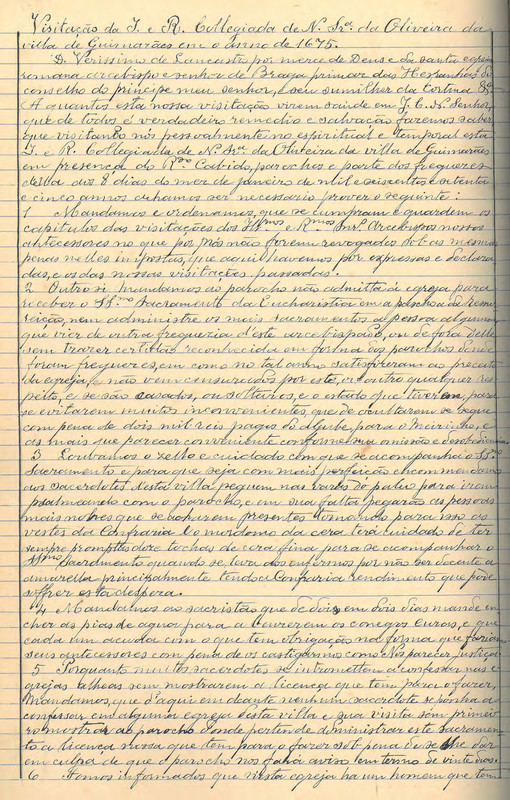 Visitação da I. e R. Collegiada de N. Srª. da Oliveira da
villa de Guimarães em o anno de 1675.
D. Verissimo de Lancastro por merce de Deus e da santa egreja
romana arcebispo e senhor de Braga primaz das Hespanhas do
conselho do principe meu senhor, e seu sumilher da cortina &ª.
A quantos esta nossa visitação virem saude em J. C. N. Senhor,
que de todos é verdadeiro remedio e salvação fazemos saber
que visitando nós pessoalmente no espiritual e temporal esta
I. e R. Collegiada de N. Srª. da Oliveira da villa de Guimarães
em presença do Rdo. Cabido, parochos e parte dos freguezes
della aos 8 dias do mez de Janeiro de mil e seiscentos e setenta
e cinco annos achamos ser necessario prover o seguinte:
1 Mandamos e ordenamos, que se cumpram e guardem os
capitulos das visitações dos Illmos e Rmos Snrs. Arcebispos nossos
antecessores no que por nós não forem revogados sob as mesmas
penas nelles impostas, que aqui havemos por expressas e declara
das, e os das nossas visitações passadas.
2 Outrosi mandamos ao parocho não admitta á egreja para
receber o SSmo Sacramento da Eucharistia em a paschoa da resur
reição, nem administre os mais sacramentos a pessoa alguma
que vier de outra freguezia d'este arcebispado, ou de fora delle
sem trazer certidão reconhecida em forma dos parochos donde
foram freguezes, em como no tal anno satisfizeram ao preceito
da egreja, e não vem censurados por este, ou outro qualquer res
peito, e se são casados, ou solteiros, e o estado que tiverem, para
se evitarem muitos inconvenientes, que de ocultarem se segue
com pena de dois mil reis pagos do aljube, para o meirinho, e
as mais que parecer conveniente conforme sua omissão e desobediencia
3 Louvamos o zelho e cuidado com que se acompanha o SSmo
Sacramento e para que seja com mais perfeição encommendamos
aos sacerdotes desta villa peguem nas varas do palio para irem
psalmeando com o parocho, e em sua falta pegarão as pessoas
mais nobres que se acharem presentes tomando para isso as
vestes da Confraria e o mordomo da cera terá cuidado de ter
sempre promptas doze tochas de cera fina para se acompanhar o
SSmo Sacramento quando se leva aos enfermos por não ser decente a
amarella principalmente tendo a Confraria rendimento que pode
soffrer esta despeza.
4 Mandamos ao sacristão que de dois em dois dias mande en
cher as pias de agua para a benzerem os conegos curas, e que
cada um acuda com o que tem obrigação na forma que faziam
seus antecessores com pena de os castigarmos como Nos parecer justiça
5 Porquanto muitos sacerdotes se intromettem a confessar nas e
grejas alheas sem mostrarem a licença que tem para o fazer,
mandamos, que d'aqui em deante nenhum sacerdote se ponha a
confessar em alguma egreja desta villa e sua visita sem primei
ro mostrar ao parocho donde pertende administrar este sacramen
to a licença nossa que tem para o fazer sob pena de se lhe dar
em culpa de que o parocho nos fará aviso em termo de vinte dias.
6 Fomos informados que nesta egreja ha um homem que tem